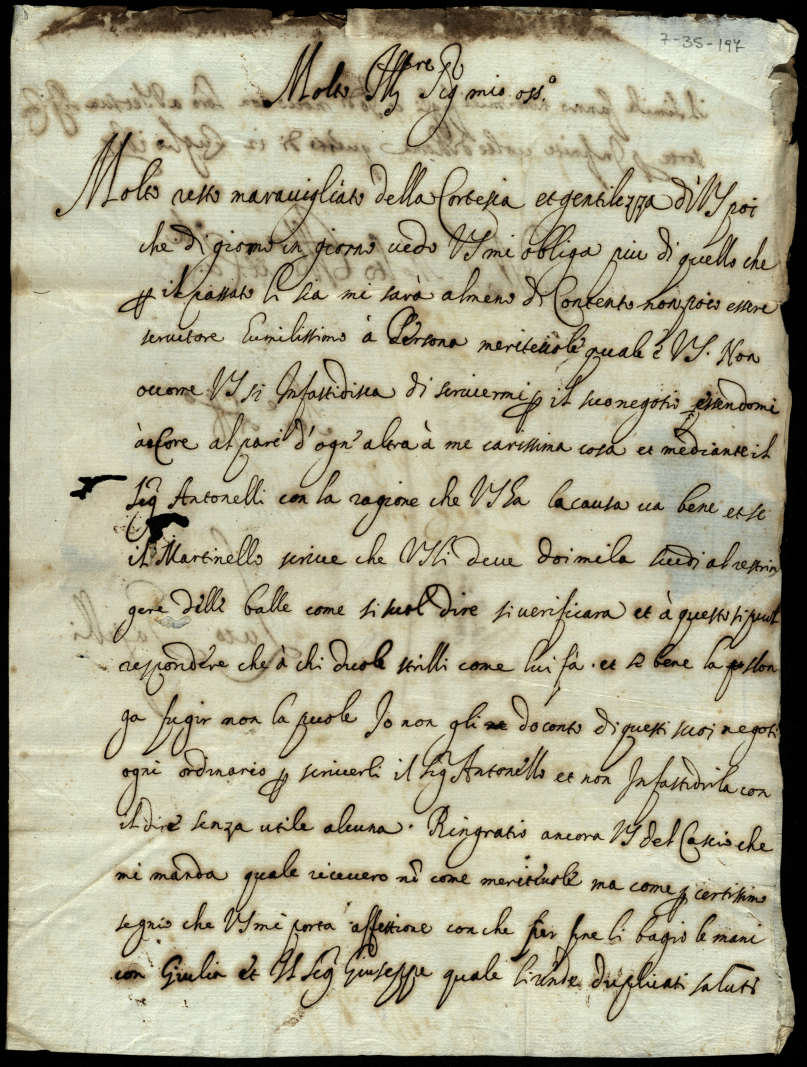 7-35-197
Molto Ill.re Sig mio oss.o
Molto resto maravigliato della Cortesia et gentilezza di VS poi
che di giorno in giorno vedo VS mi obliga piu di quello che
p il passato li sia mi sarà almeno di Contento non poco essere
servitore humilissimo à Persona meritevole quale è VS. Non
occorre VS si Infastidisca di scrivermi p il suo negotio essendomi
à cCore al pari d'ogn'altra à me carissima cosa et mediante il
Sig Antonelli con la ragione che VS ha la causa va bene et se
il Martinello scrive che VS li deve doi mila scudi al restrin
gere delle balle come si suol dire si verificara et à questo si puol
respondere che à chi duole strilli come lui fà. et se bene la slon
ga fugir non la puole Io non gli do conto di questi suoi negoti
ogni ordinario p scriverli il Sig Antonello et non Infastidirla con
il dire senza utile alcuna. Ringratio ancora VS del Cascio che
mi manda quale ricevero nõ come meritevole ma come p certissimo
segnio che VS mi porta affettione con che per fine li bagio le mani
con Giulia et Il Sig Giuseppe quale li rende duplicati saluti